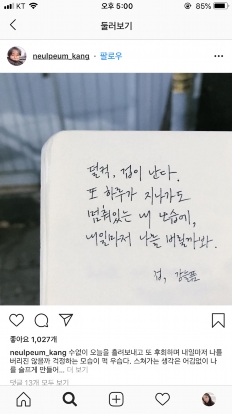 KT
오후 5:00
85%
둘러보기
neulpeum_kang · 팔로우
덜컥, 겁이 난다.
또 하루가 지나가도
멈춰있는 내 모습에,
내일마저 나를 버릴까봐.
겁, 강늘픔
좋아요 1,027개
neulpeum_kang 수없이 오늘을 흘려보내고 또 후회하며 내일마저 나를
버리진 않을까 걱정하는 모습이 퍽 우습다. 스쳐가는 생각은 어김없이 나
를 슬프게 만들어... 더 보기
댓글 13개 모두 보기